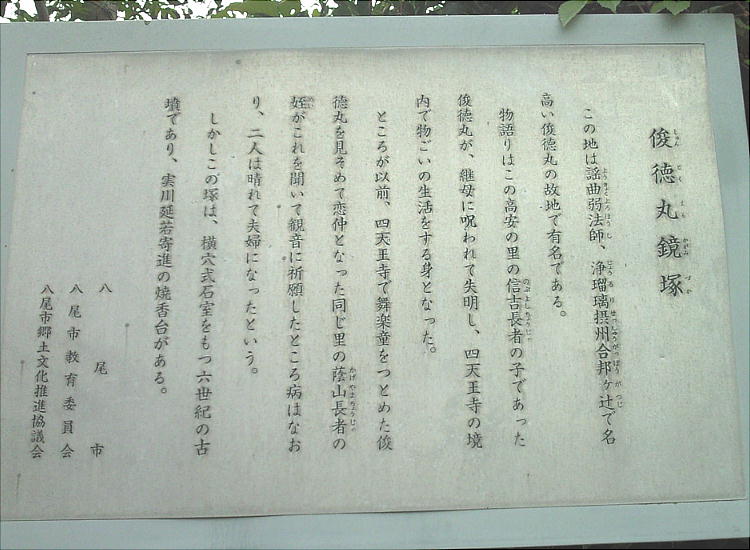 俊徳丸鏡塚
この地は謡曲弱法師、浄瑠璃摂州合邦ヶ辻で名
高い俊徳丸の故地で有名である。
物語りはこの高安の里の信吉長者の子であった
俊徳丸が、継母に呪われて失明し、四天王寺の境
内で物ごいの生活をする身となった。
ところが以前、四天王寺で舞楽童をつとめた俊
徳丸を見そめて恋仲となった同じ里の蔭山長者の
姪がこれを聞いて観音に祈願したところ病はなお
り、二人は晴れて夫婦になったという。
しかしこの塚は、横穴式石室をもつ六世紀の古
墳であり、実川延若寄進の焼香台がある。
八尾市
八尾市教育委員会
八尾市郷土文化推進協議会